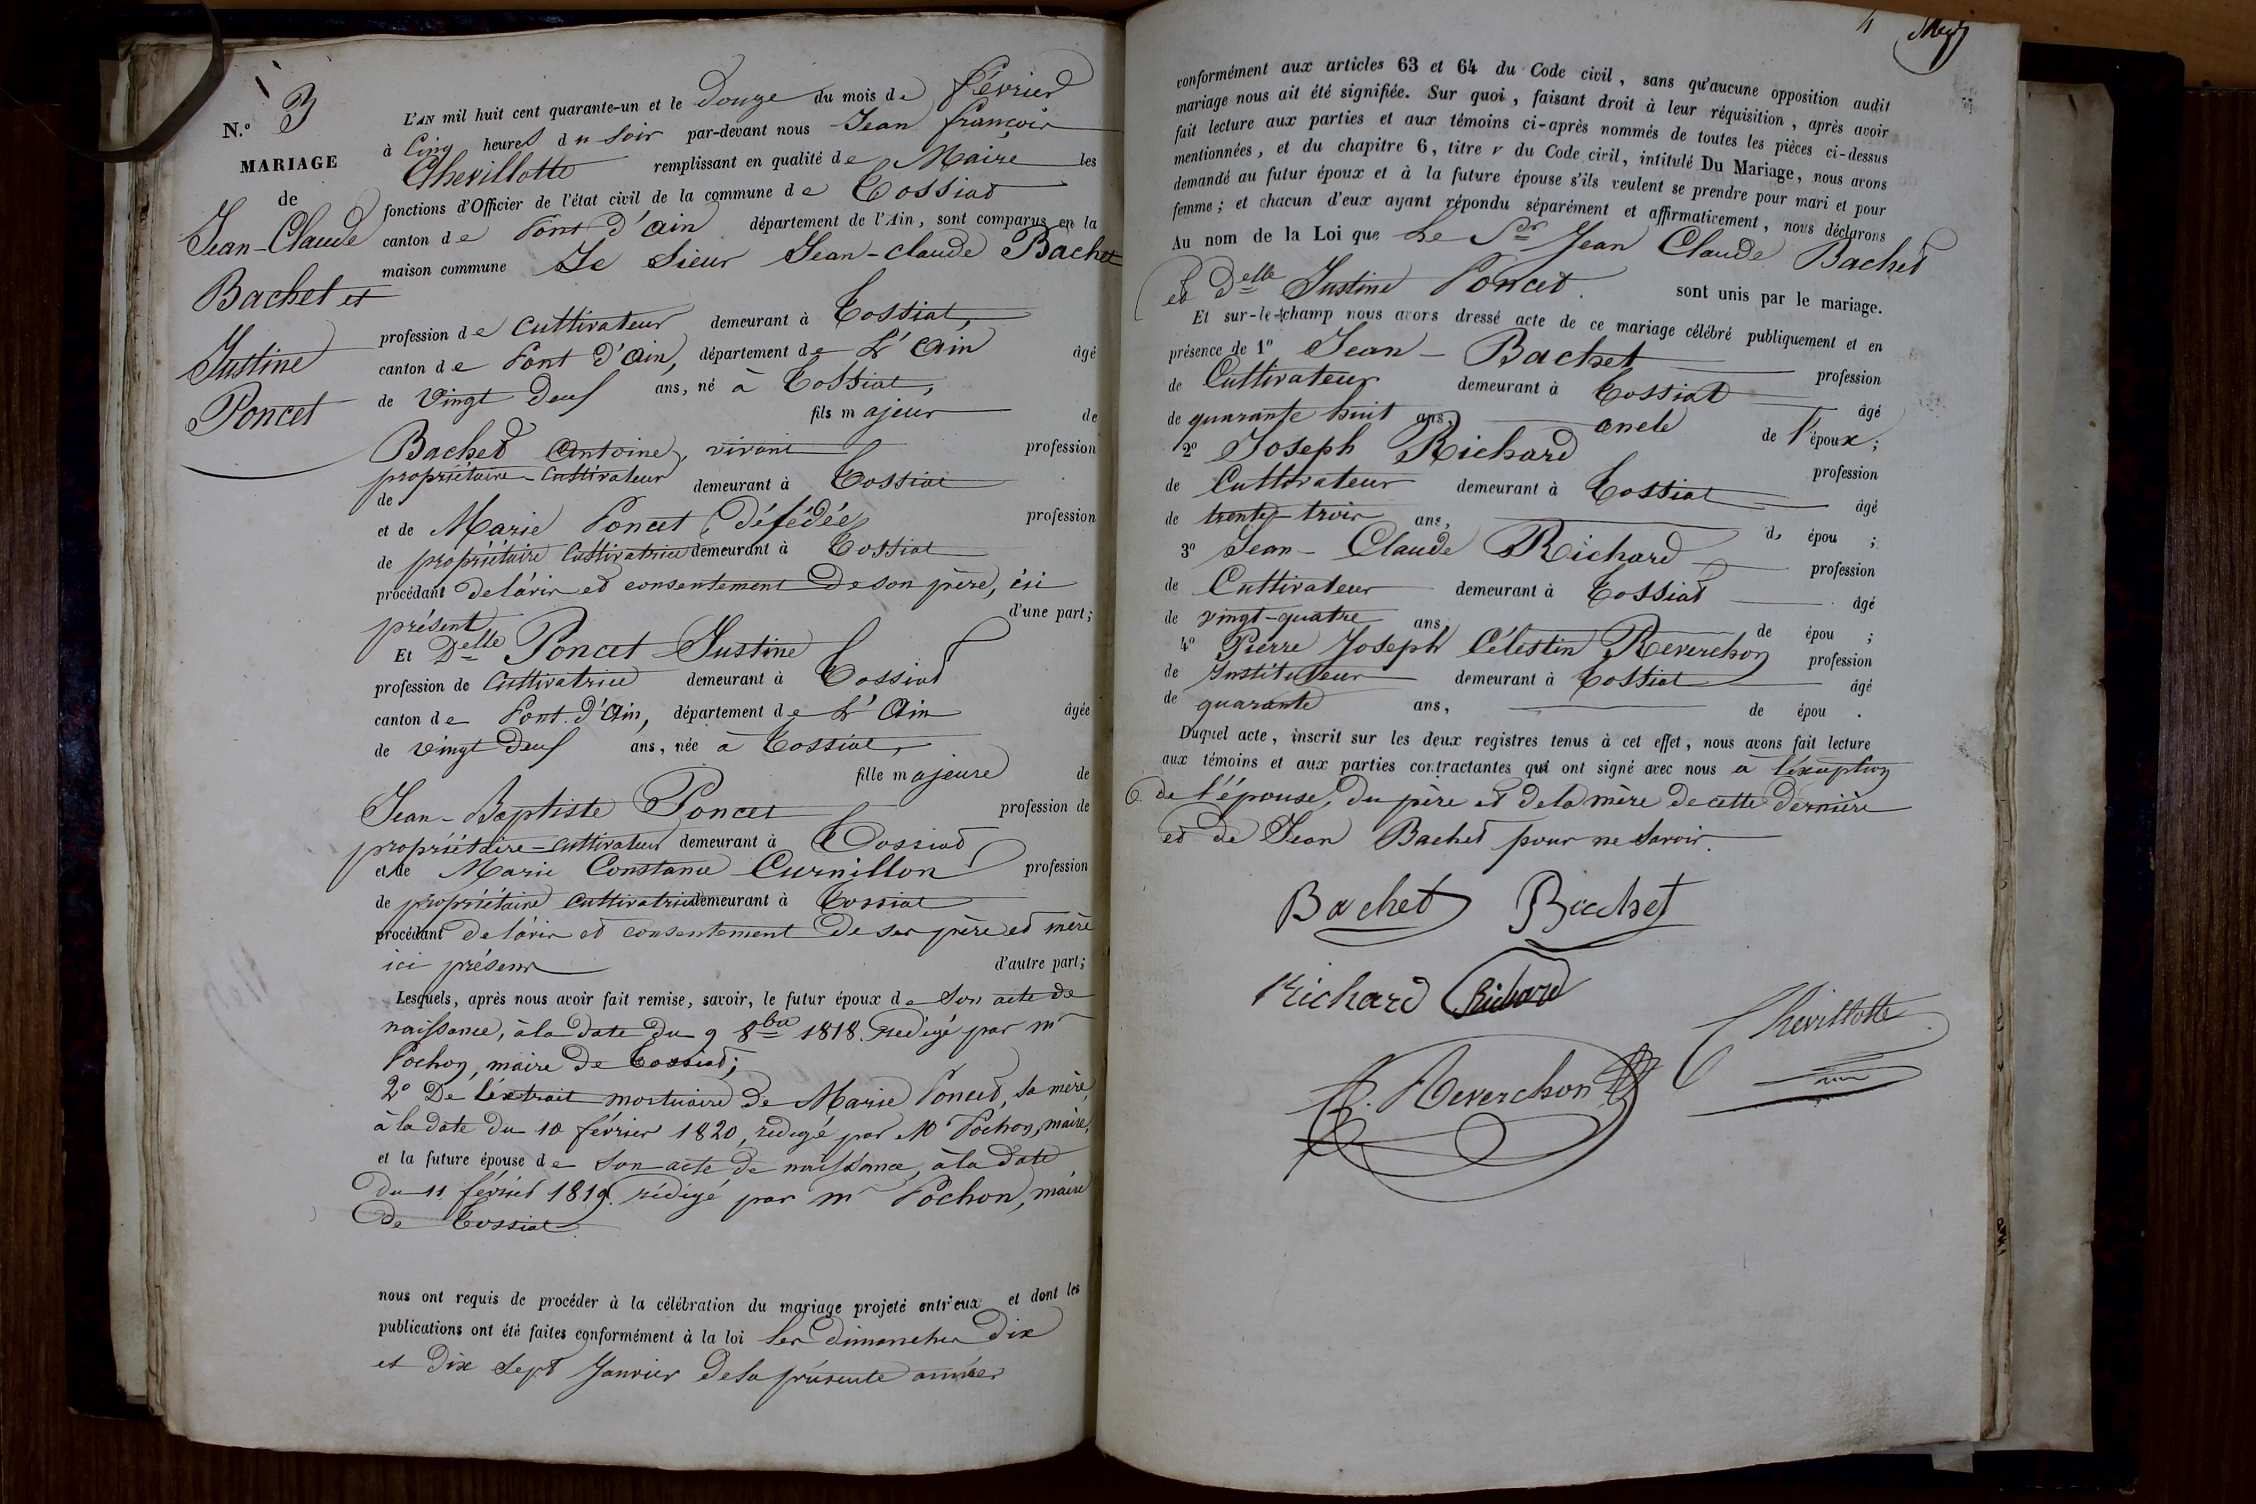 N.° 3
MARIAGE
de
Jean-Claude
Bachet et
Justine
Poncet
L'AN mil huit cent quarante-un et le Douze du mois de février
à Cinq heures du Soir par-devant nous Jean françois
Chevillotte remplissant en qualité de Maire les
fonctions d'Officier de l'état civil de la commune de Tossiat
canton de Pont d'ain département de l'Ain, sont comparus en la
maison commune Le Sieur Jean-claude Bachet
profession de Cultivateur demeurant à Tossiat,
canton de Pont d'Ain, département de L'Ain âgé
de Vingt Deux ans, né à Tossiat,
fils majeur de
Bachet Antoine, vivant profession
de propriétaire-Cultivateur demeurant à Tossiat
et de Marie Poncet, Décédée profession
de propriétaire Cultivatrice demeurant à Tossiat
procédant de l'avis et consentement de son père, ici
présent d'une part;
Et Delle Poncet Justine
profession de Cultivatrice demeurant à Tossiat
canton de Pont. d'Ain, département de L'Ain âgée
de vingt Deux ans, née à Tossiat,
fille majeure de
Jean-Baptiste Poncet profession de
propriétaire-Cultivateur demeurant à Tossiat
et de Marie Constance Curnillon profession
de propriétaire Cultivatrice demeurant à Tossiat
procédant de l'avis et consentement de ses père et mère
ici présens d'autre part;
Lesquels, après nous avoir fait remise, savoir, le futur époux de Son acte de
naissance, à la date du 9 8bre 1818. redigé par mr
Pochon, maire de Tossiat;
2° De l'extrait mortuaire de Marie Poncet, sa mère,
à la date du 10 février 1820, redigé par M Pochon, maire,
et la future épouse de Son acte de naissance, à la date
du 11 février 1819. rédigé par mr Pochon, maire
de Tossiat
nous ont requis de procéder à la célébration du mariage projeté entr'eux et dont les
publications ont été faites conformément à la loi les dimanches Dix
et Dix Sept Janvier de la présente année
4
conformément aux articles 63 et 64 du Code civil, sans qu'aucune opposition audit
mariage nous ait été signifiée. Sur quoi, faisant droit à leur réquisition, après avoir
fait lecture aux parties et aux témoins ci-après nommés de toutes les pièces ci-dessus
mentionnées, et du chapitre 6, titre v du Code civil, intitulé Du Mariage, nous avons
demandé au futur époux et à la future épouse s'ils veulent se prendre pour mari et pour
femme; et chacun d'eux ayant répondu séparément et affirmativement, nous déclarons
Au nom de la Loi que Le Sr Jean Claude Bachet
et Delle Justine Poncet. sont unis par le mariage.
Et sur-le-champ nous avons dressé acte de ce mariage célébré publiquement et en
présence de 1° Jean-Bachet profession
de Cultivateur demeurant à Tossiat âgé
de quarante huit ans, oncle de l'époux;
2° Joseph Richard profession
de Cultivateur demeurant à Tossiat âgé
de trente-trois ans, de épou ;
3° Jean-Claude Richard profession
de Cultivateur demeurant à Tossiat âgé
de vingt-quatre ans, de épou ;
4° Pierre Joseph Célestin Reverchon profession
de Instituteur demeurant à Tossiat âgé
de quarante ans, de épou .
Duquel acte, inscrit sur les deux registres tenus à cet effet, nous avons fait lecture
aux témoins et aux parties contractantes qui ont signé avec nous à l'éxception
de l'épouse, du père et de la mère de cette dernière
et de Jean Bachet pour ne Savoir.
Bachet Bachet
Richard Richard
Chevillotte
Reverchon